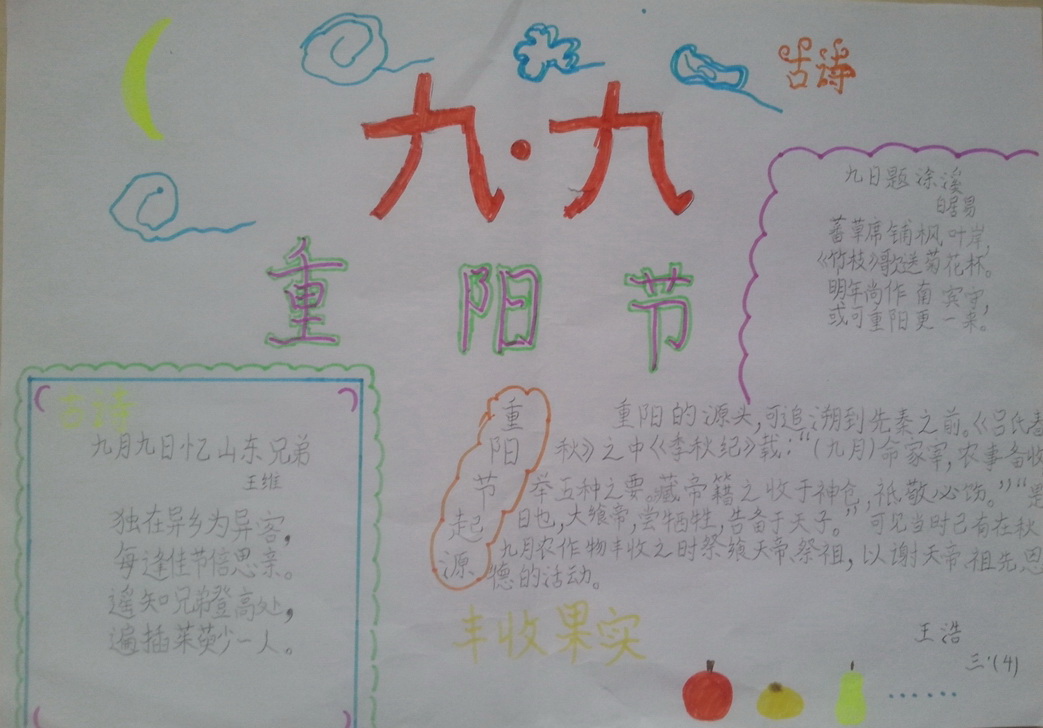 古诗
九·九
重阳节
九日题涂溪
白居易
蕃草席铺枫叶岸，
《竹枝》歌送菊花杯。
明年尚作南宾守，
或可重阳更一来。
古诗
九月九日忆山东兄弟
王维
独在异乡为异客，
每逢佳节倍思亲。
遥知兄弟登高处，
遍插茱萸少一人。
重阳节起源
重阳的源头，可追溯到先秦之前。《吕氏春
秋》之中《季秋纪》载：“（九月）命家宰，农事备收
举五种之要。藏帝籍之收于神仓，祗敬必饬。”“是
日也，大飨帝，尝牺牲，告备于天子。”可见当时已有在秋
九月农作物丰收之时祭飨天帝、祭祖，以谢天帝、祖先恩
德的活动。
丰收果实
王浩
三·(4)